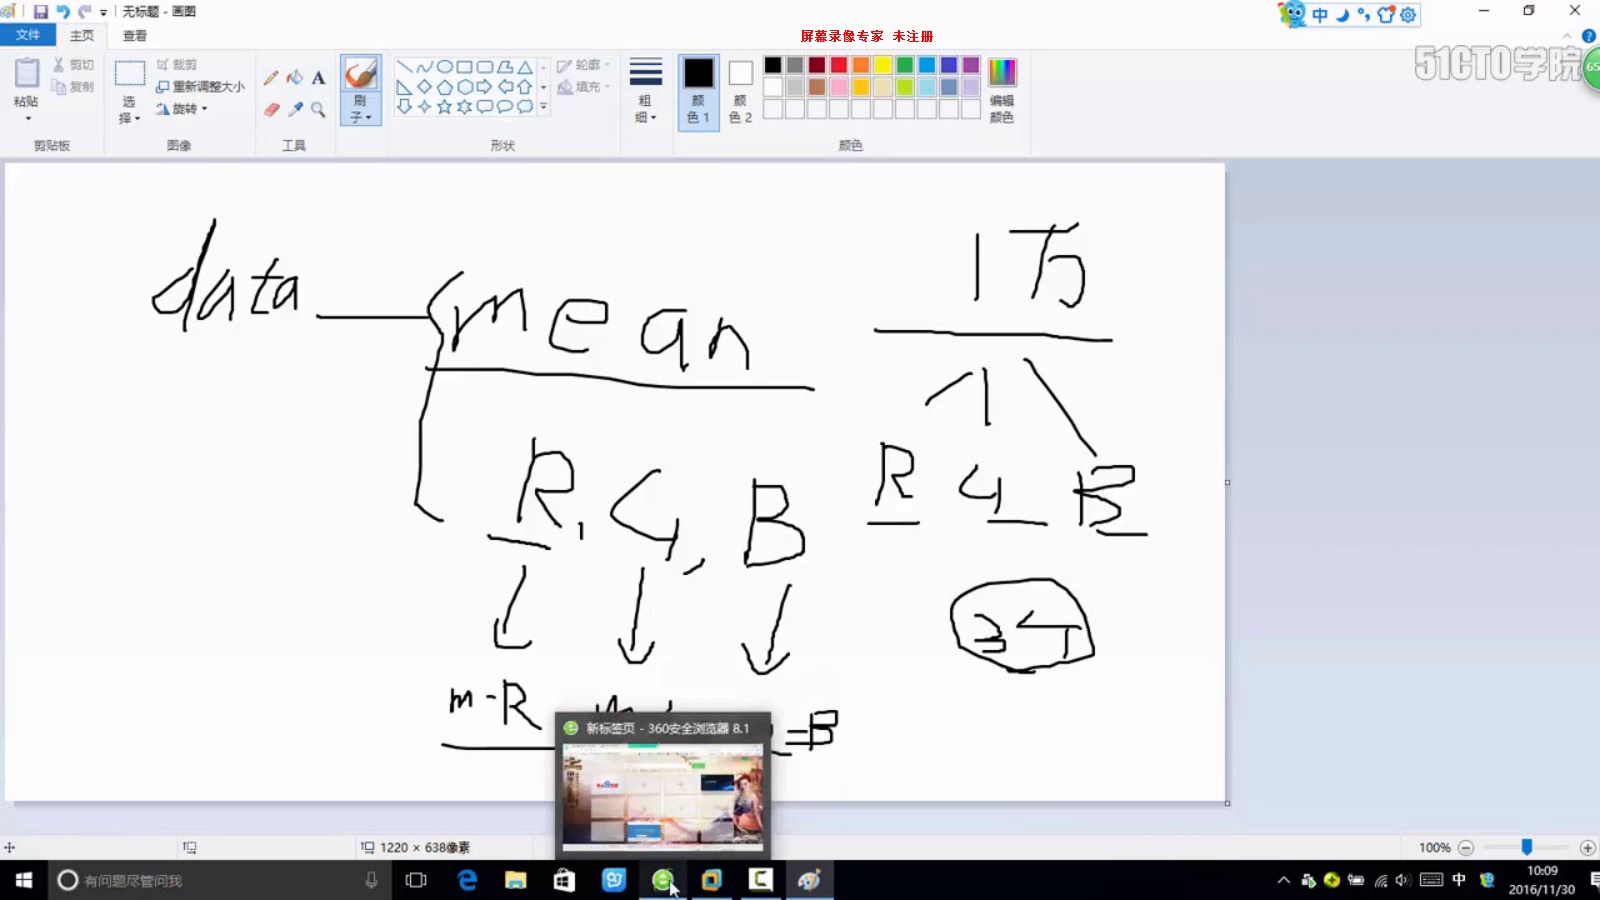 无标题 - 画图
中
文件
主页
查看
屏幕录像专家 未注册
51CTO学院
65
粘贴
剪切
复制
选择
裁剪
重新调整大小
旋转
A
刷子
轮廓
填充
粗细
颜色 1
颜色 2
编辑颜色
剪贴板
图像
工具
形状
颜色
data
mean
1万
R, G, B
R G B
m-R
=B
新标签页 - 360安全浏览器 8.1
1220 × 638像素
100%
有问题尽管问我
中
10:09
2016/11/30